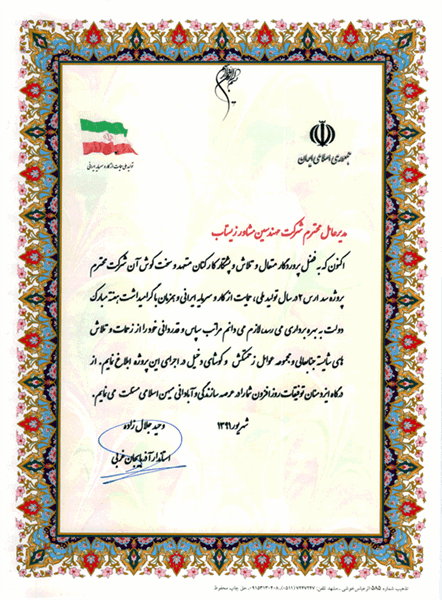 جمهوری اسلامی ایران
تولید ملی حمایت از کار و سرمایه ایرانی
مدیر عامل محترم شرکت مهندسین مشاور زیستاب
اکنون که به فضل پروردگار متعال و تلاش و پشتکار کارکنان متعهد و سخت کوش آن شرکت محترم
پروژه سد ارس ۲ در سال تولید ملی، حمایت از کار و سرمایه ایرانی و همزمان با گرامیداشت هفته مبارک
دولت به بهره برداری می رسد، لازم می دانم مراتب سپاس و قدردانی خود را از زحمات و تلاش
های شایسته جنابعالی و مجموعه عوامل زحمتکش و کوشای دخیل در اجرای این پروژه ابلاغ نمایم. از
درگاه ایزد منان توفیقات روز افزون شما را در عرصه سازندگی و آبادانی میهن اسلامی مسئلت می نمایم.
شهریور ۱۳۹۱
وحید جلال زاده
استاندار آذربایجان غربی
تذهیب شماره ۵۸۵ اثر عباس خوشی - مشهد تلفن: ۷۲۴۷۲۴۷ (۰۵۱۱) - ۰۹۱۵۳۱۳۰۴۰۸ حق چاپ محفوظ